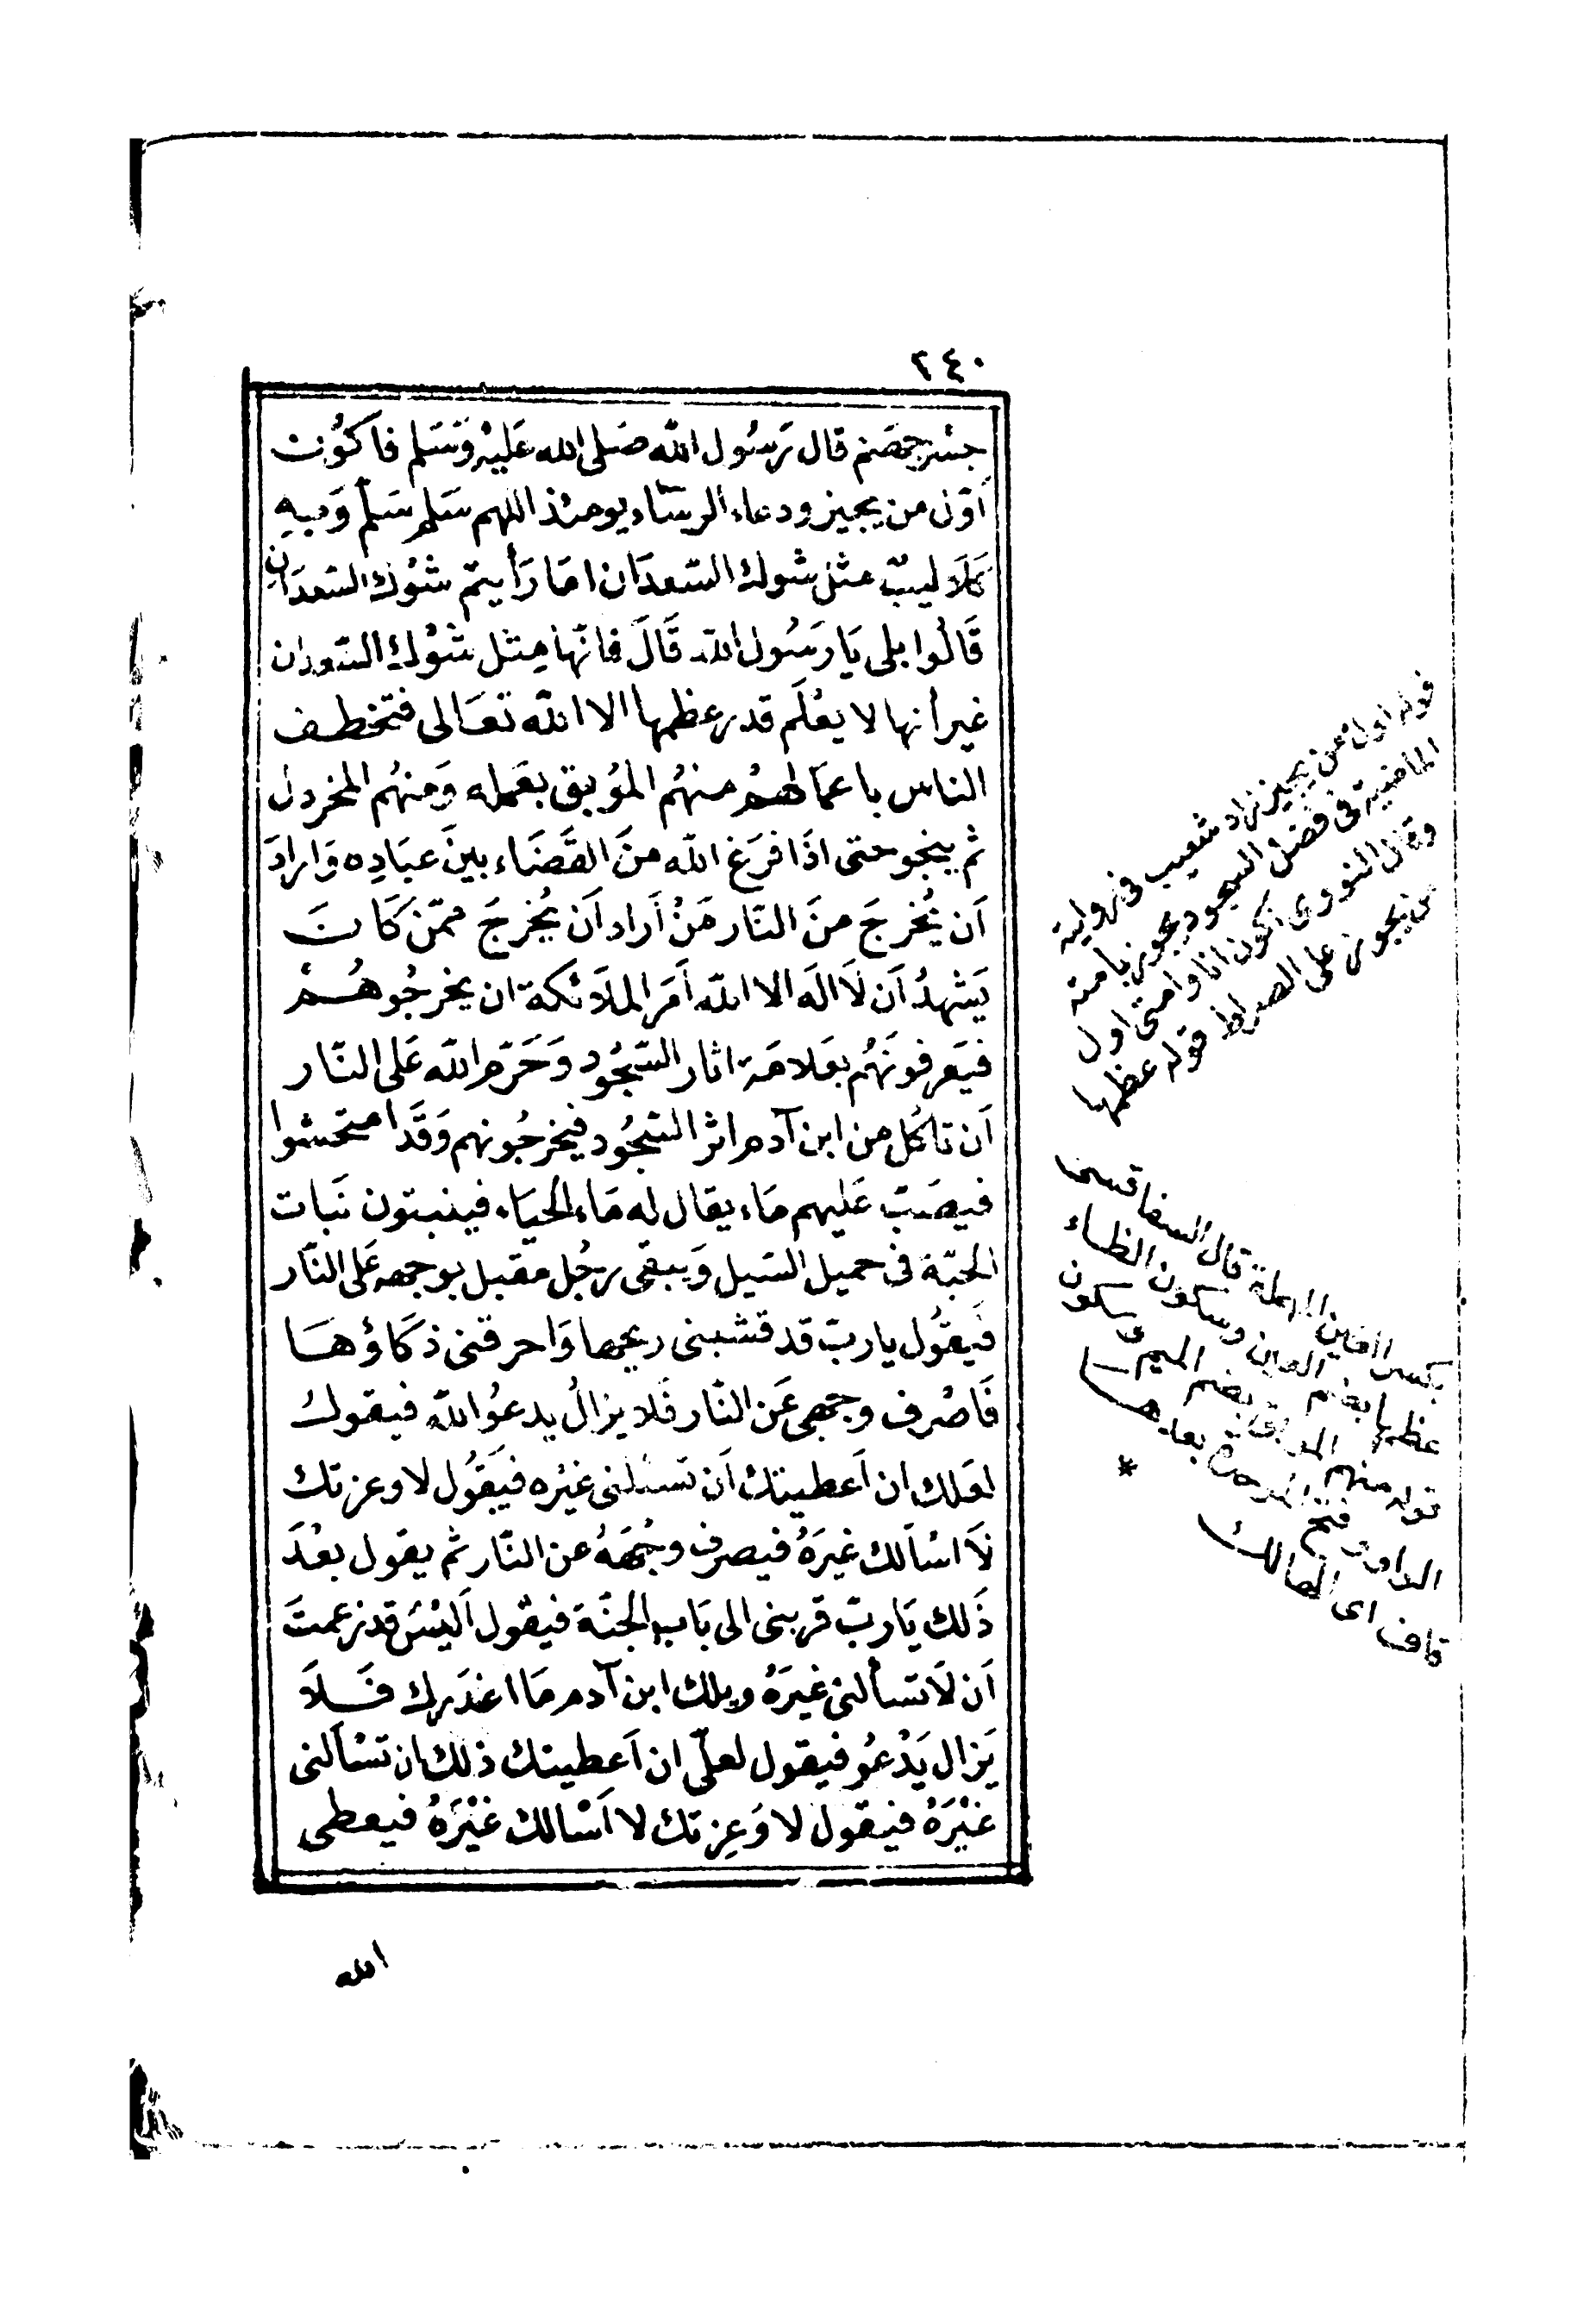 ٢٤٠
جسْر جهنم قال رَسُول الله صَلى الله عَليْه وَسَلم فاكوُن
أوّل من يجيز ودعاء الرسل يومئذ اللهم سَلم سَلم وَبه
كلاَليبُ مثل شوك السّعدَان امَا رَأيتم شوْك السّعدَان
قَالُوا بلى يَا رَسُول الله قَالَ فانّها مِثل شوْك السّعدان
غير أنها لا يعْلَم قدر عظمها الا الله تعَالى فتخطف
الناس باعمَالهمْ منهُم المُوبق بعَمله وَمنهُم المخردل
ثم ينجو حتى اذَا فرَغ الله منَ القَضَاء بينَ عبَادِه وَارادَ
اَن يُخرجَ منَ النّار مَنْ أراد اَن يُخرجَ ممّن كَانَ
يَشهدُ اَن لاَ الَه الا الله اَمَر الملاَئكة ان يخرجُوهُمْ
فيَعرفونَهُم بعَلامَة اثار السّجُود وَحَرّم الله عَلى النّار
اَن تاكُل من ابن آدم اثر السّجُود فيخرجُونهم وَقَد امتحشوا
فيصَبّ عَليهم مَاء يقال له مَاء الحيَاه فينبتون نَبات
الحبّة فى حميل السّيل وَيبقى رجُل مقبل بوجهه عَلى النّار
فَيقوُل يا ربّ قد قشبنى ريحها وَاحرقنى ذكاؤهَا
فَاصْرف وجهى عَن النّار فَلا يزالُ يدعُو الله فيقول
لعَلك ان اَعطيتك اَن تسئلنى غيْره فيَقُول لا وعزتك
لاَ اسْاَلك غيرَهُ فيصرف وجْهَهُ عن النّار ثم يقول بعْدَ
ذَلك يَا ربّ قربنى الى بَاب الجنّة فيقول اَليْسَ قد زعمتَ
اَن لاَ تسألنى غيرَهُ ويلك ابن آدم مَا اغدَرك فَلاَ
يَزال يَدْعُو فيقول لعلّى ان اَعطيتك ذلك ان تسْاَلنى
غيْرَهُ فيقول لا وَعِزتك لا اَسْالك غيْرَهُ فيعطى
الله
قوله اول من يجيز زاد شعيب فى رواية
الماضية فى فضل السجود يجوز بامته
وقال النووى اكون انا وامتى اول
من يجوز على الصراط قوله عظمها
بكسر العين المهملة قال السفاقسى
عظمها بضم العين وسكون الظاء
قوله منهم الموبق بضم الميم وسكون
الواو وفتح الموحدة بعدها
قاف اى الهالك *